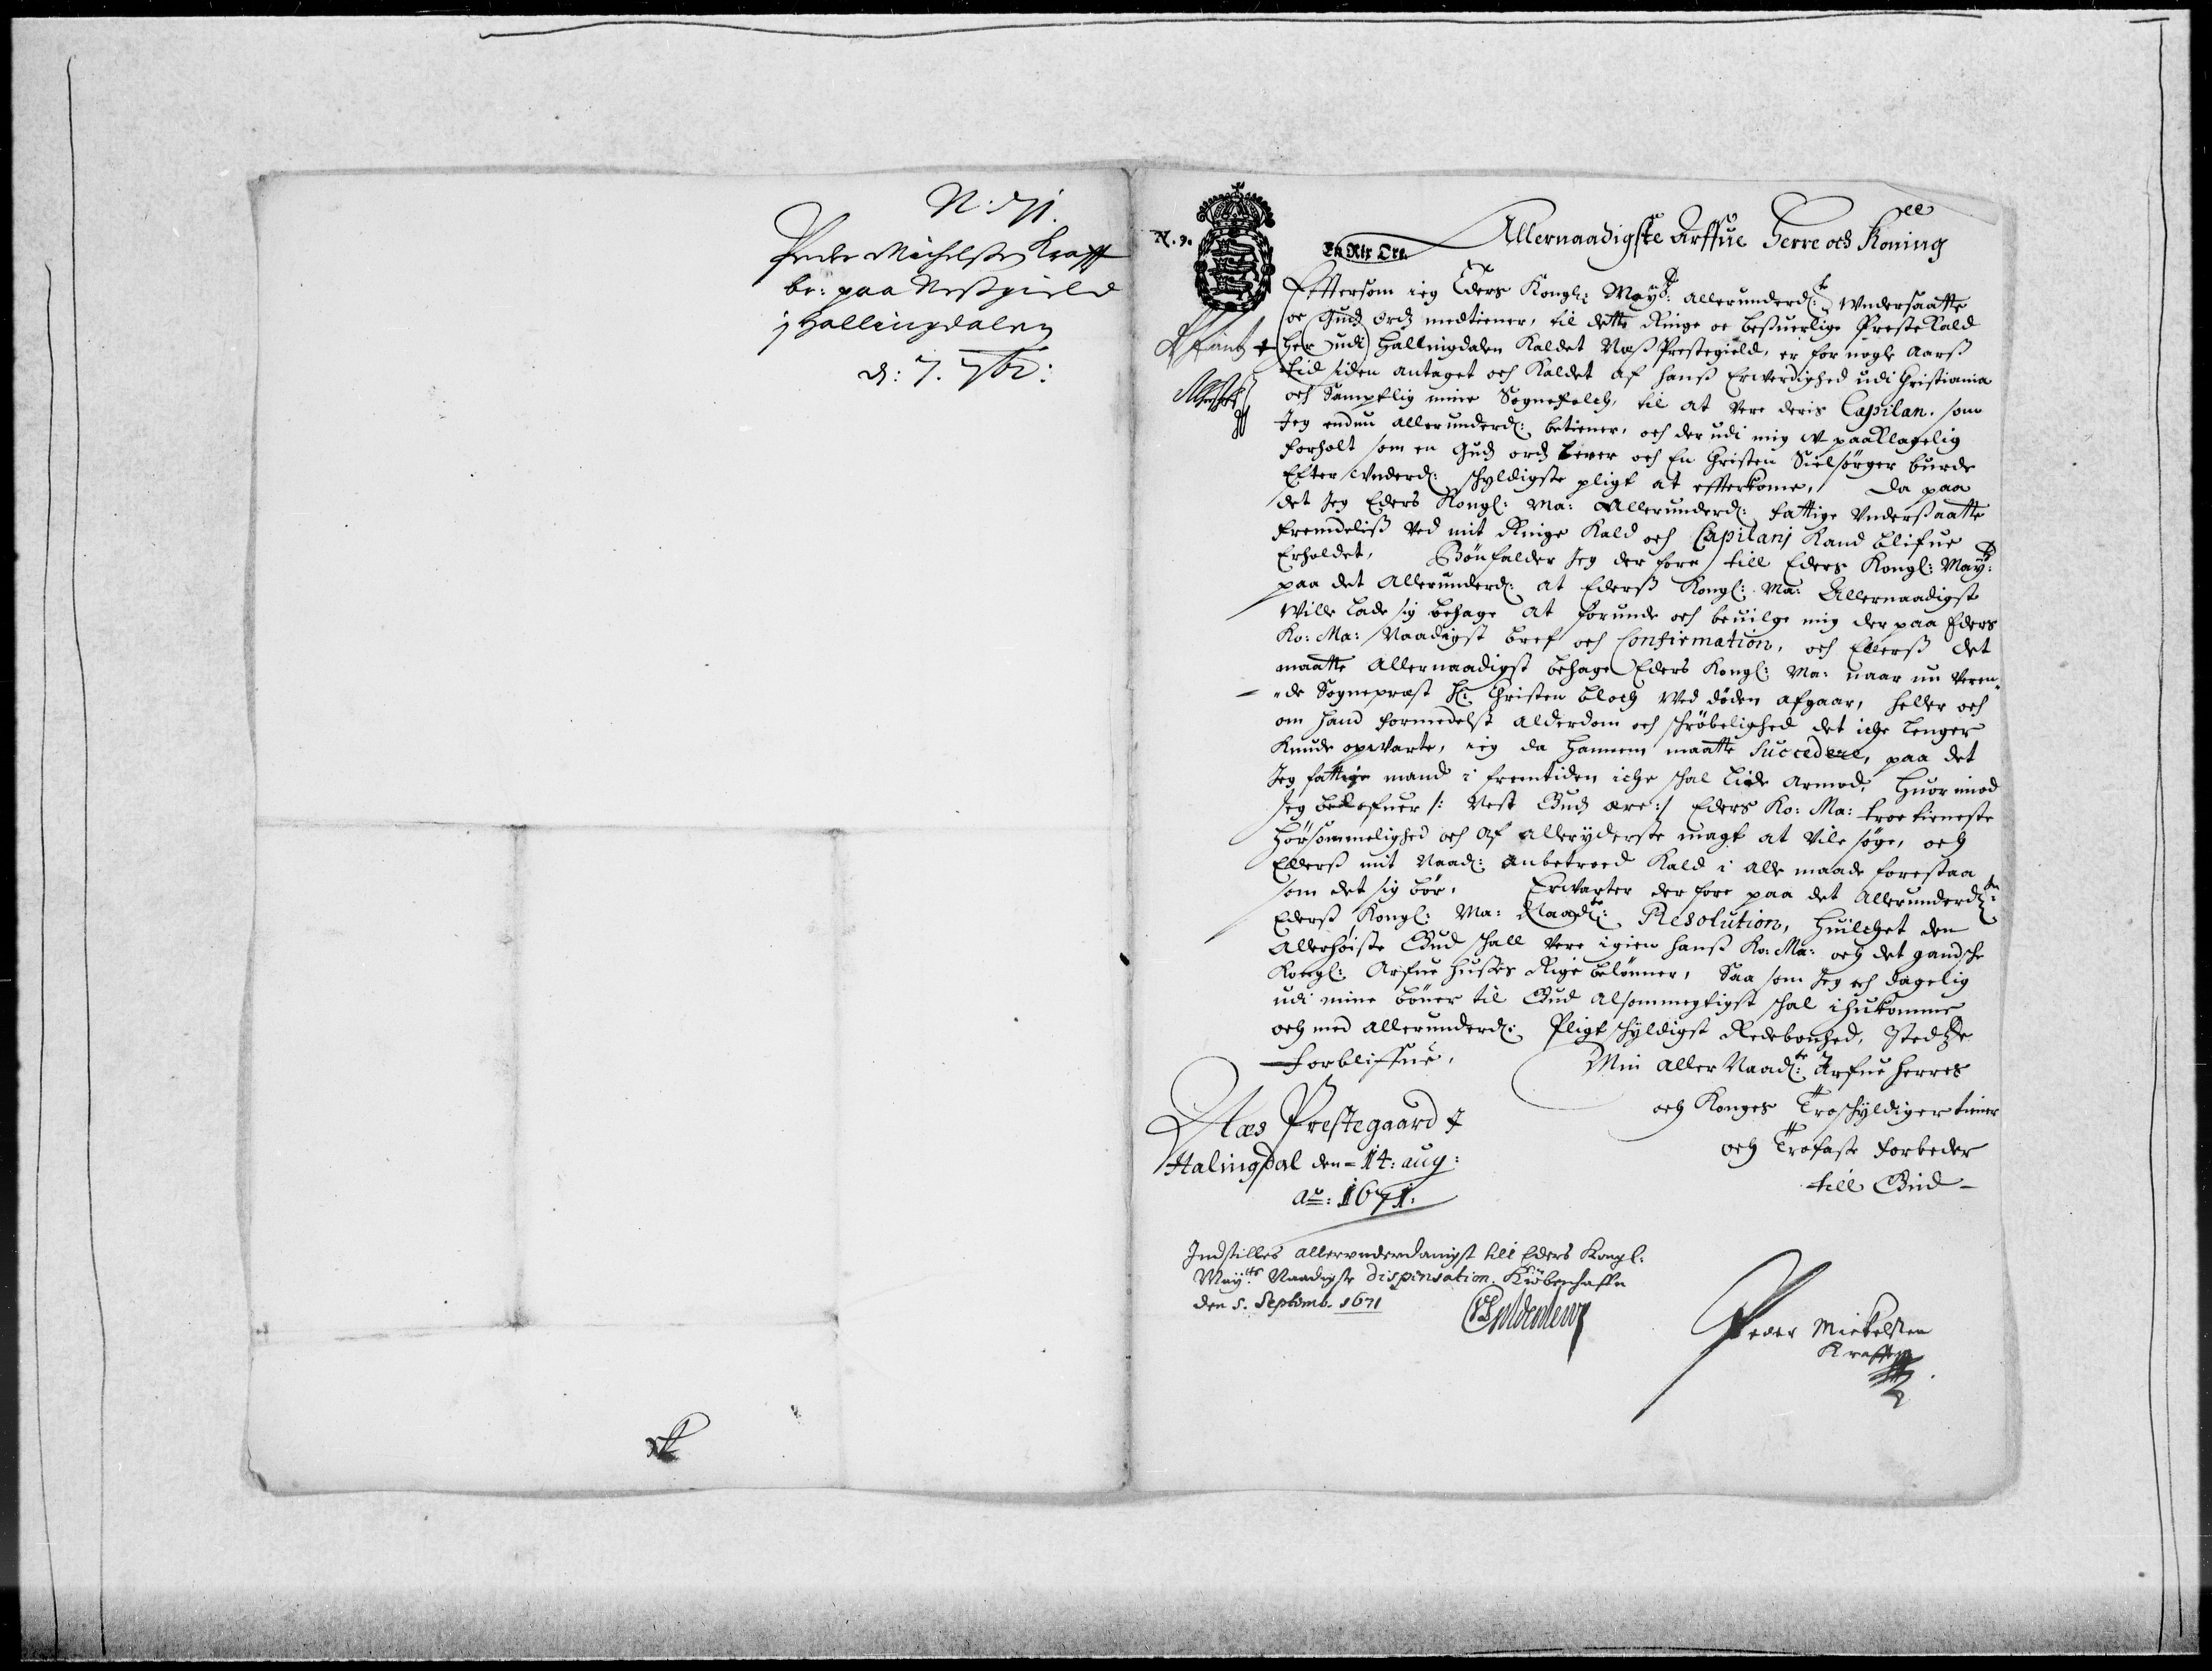 N: 171.
Peder Michelsen Krafft
br: paa Nesgield
j Hallingdalen
d: 7. 7br:
N. 9.
En Rix Ort.
Allernaadigste Arffue Herre och Koning
Effttersom ieg Eders Kongl: Mayts: allerunderd: Undersaatte
oc Guds ords medtiener, til dette Ringe oc besuerlige Preste Kald
her udi Hallingdalen Kaldet Næs Prestegield, er for nogle aars
tid siden antaget och Kaldet af hans Erværdighed udi Christiania
och Samptlig mine Sognefolch, til at vere deris Capilan. som
Jeg endnu allerunderd: betiener, och der udi mig U-paaklagelig
forholt som en Guds ords tiener och En Christen Sielsörger burde
Efter Underd: schyldigste pligt at effterkome, Da paa
det Jeg Eders Kongl: Ma: Allerunderd: fattige Undersaatte
fremdelis ved mit Ringe Kald och Capilanj Kand blifue
Erholdet, Bönfalder Jeg der fore till Eders Kongl: Mayts:
paa det Allerunderd: at Eders Kongl: Ma: Allernaadigst
Wille lade sig behage at forunde och beuilge mig der paa Eders
Ko: Ma: Naadigst bref och Confirmation, och Ellers det
maatte Allernaadigst behage Eders Kongl: Ma: naar nu veren-
de Sogneprest Hr: Christen bloch Ved döden afgaar, heller och
om hand formedelst alderdom och schröbelighed det iche lenger
Kunde opvarte, ieg da hannem maatte Succedere, paa det
Jeg fattige mand i fremtiden iche schal lide armod, Huor imod
Jeg /: Nest Guds ære :/ Eders Ko: Ma: troe tieneste
hörsommelighed och af alleryderste magt at vile söge, och
Ellers mit Naad: anbetroed Kald i alle maade forestaa
som det sig bör, Erwarter der fore paa det Allerunderd:
Eders Kongl: Ma: Naad: Resolution, Huilchet den
Allerhöiste Gud schall vere igien hans Ko: Ma: och det gandsche
Kongl: Arfue Huses Rige belönner, Saa som Jeg och dagelig
udi mine böner til Gud alsommegtigst schal ihukomme
och med allerunderd: Pligtschyldigst Redebonhed, Stedtze
forbliffue,
Min aller Naad: Arfue Herres
och Konges Troschyldiger tiener
och Trofaste forbeder
till Gud
Næs Prestegaard J
Halingdal den 14: aug:
ao: 1671:
Indstilles allerunderdanigst till Eders Kongl:
Maytts Naadigste dispensation. Kiöbenhaffn
den 5. Septemb. 1671
Peder Mickelsen
Krafft